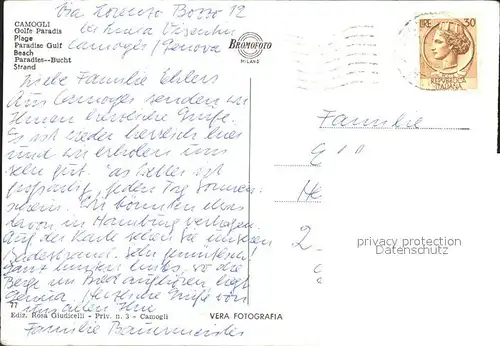 Via Lorenzo Bozzo 12
CAMOGLI
Golfo Paradis
Plage
Paradise Gulf
Beach
Paradies--Bucht
Strand
bei
Camogli / Genova
BROMOFOTO
MILANO
LIRE 30
REPUBBLICA
ITALIANA
Liebe Familie Ehlers
Aus Camogli senden wir
Ihnen herzliche Grüße.
Es ist wieder herrlich hier
und wir erholen uns
sehr gut. Das Wetter ist
großartig, jeden Tag Sonnen-
schein. Wir könnten etwas
davon in Hamburg vertragen.
Auf der Karte sehen Sie unseren
Badestrand. Sehr gemütlich!
Ganz hinten links, wo die
Berge im Bild aufhören liegt
Genua. Herzliche Grüße von
uns allen Ihre
Familie Bauermeister
Familie
G
He
2
privacy protection
Datenschutz
77
Ediz. Rosa Giudicelli - Priv. n. 3 - Camogli
VERA FOTOGRAFIA